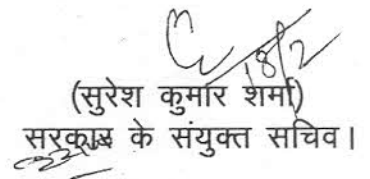 18/2
(सुरेश कुमार शर्मा)
सरकार के संयुक्त सचिव।